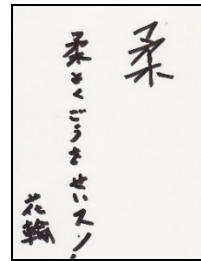 柔
柔よくごうをせいスッ!
花輪